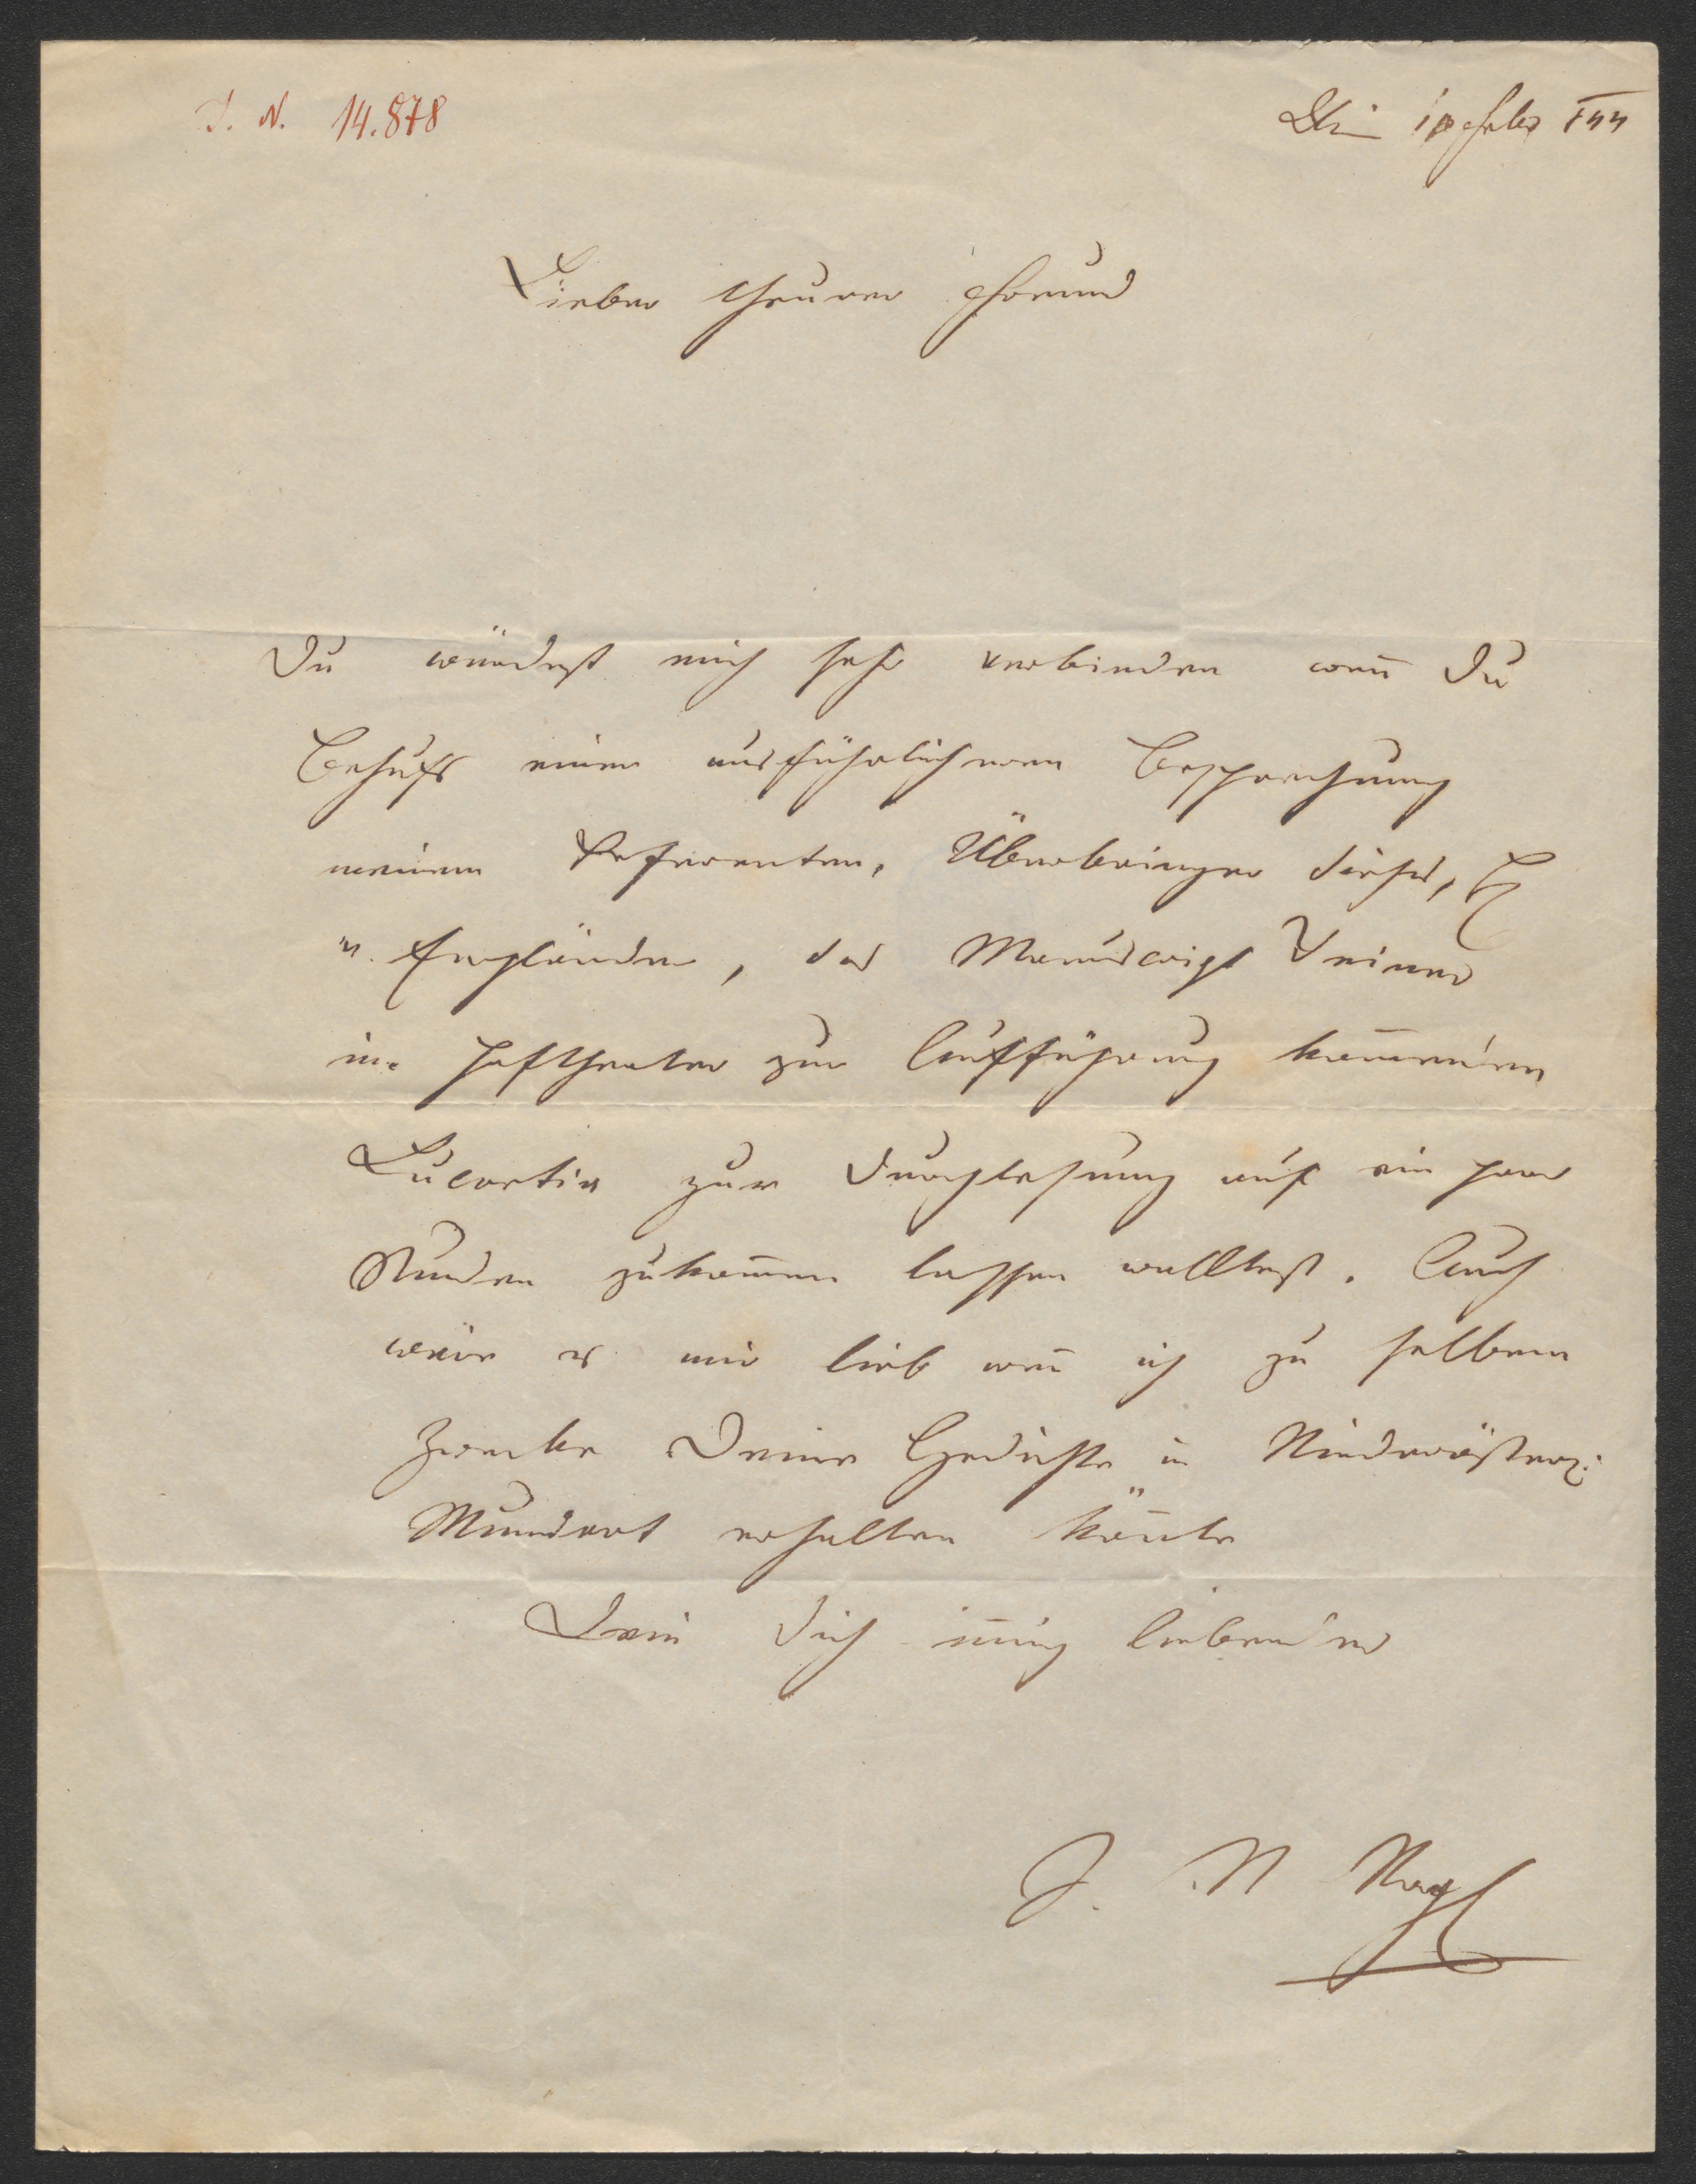 I. N. 14.878
10 Febr 844
Lieber theurer Freund
Du würdest mich sehr verbinden weñ Du
Behufs einer ausführlicheren Besprechung
meinem Referenten, Überbringer dieses, H
v. Engländer, das Manuscript Deiner
im Hoftheater zur Aufführung kom̄enden
Lucretia zur Durchlesung auf ein paar
Stunden zukom̄en lassen wolltest. Auch
wäre es mir lieb weñ ich zu selbem
Zwecke Deine Gedichte in Niederösterr:
Mundart erhalten köñte
Dein Dich iñig liebender
J. N Vogl